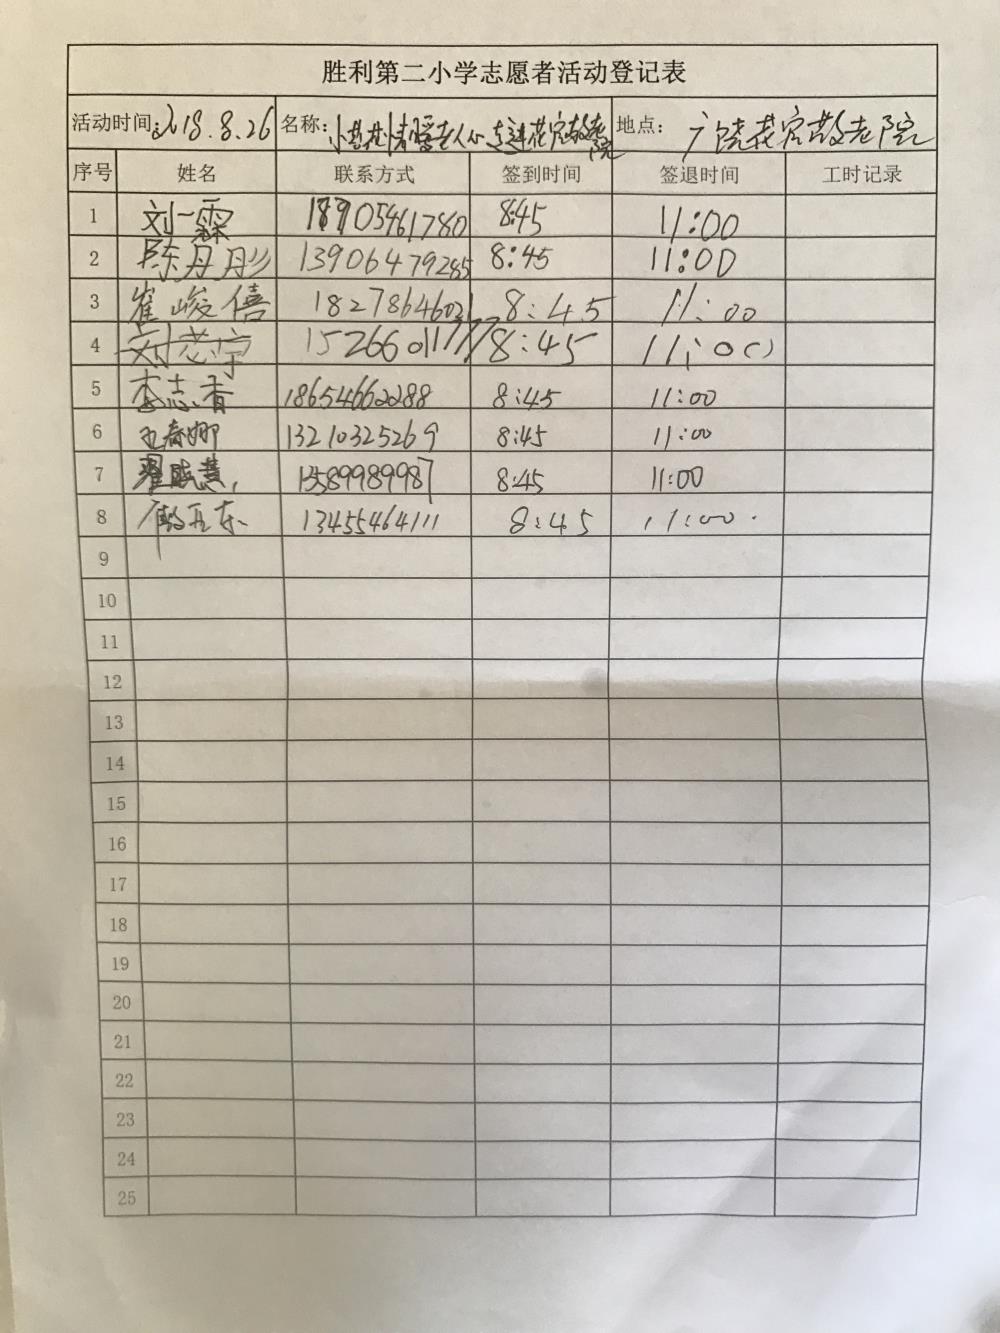 胜利第二小学志愿者活动登记表
活动时间:2018.8.26 名称: 情暖老人心 走进花官敬老院 地点: 广饶花官敬老院
序号 姓名 联系方式 签到时间 签退时间 工时记录
1 刘一霖 18905461780 8:45 11:00
2 陈丹彤 13906479285 8:45 11:00
3 崔峻僖 18278646021 8:45 11:00
4 刘芯宇 15266011777 8:45 11:00
5 李志香 18654662288 8:45 11:00
6 王春娜 13210325269 8:45 11:00
7 13589989987 8:45 11:00
8 13455464111 8:45 11:00
9
10
11
12
13
14
15
16
17
18
19
20
21
22
23
24
25